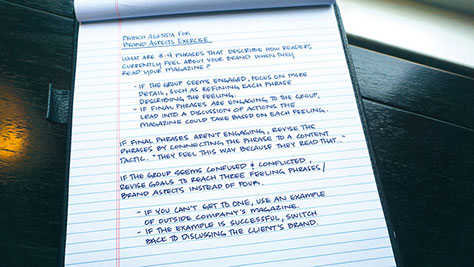 SPEECH AGENDA FOR
BRAND ASPECTS EXERCISE
WHAT ARE 3-4 PHRASES THAT DESCRIBE HOW READERS
CURRENTLY FEEL ABOUT YOUR BRAND WHEN THEY
READ YOUR MAGAZINE?
- IF THE GROUP SEEMS ENGAGED, FOCUS ON MORE
DETAIL, SUCH AS REFINING EACH PHRASE
DESCRIBING THE FEELING.
- IF FINAL PHRASES ARE ENGAGING TO THE GROUP,
LEAD INTO A DISCUSSION OF ACTIONS THE
MAGAZINE COULD TAKE BASED ON EACH FEELING.
IF FINAL PHRASES AREN'T ENGAGING, REVISE THE
PHRASES BY CONNECTING THE PHRASE TO A CONTENT
TACTIC. "THEY FEEL THIS WAY BECAUSE THEY READ THAT..."
IF THE GROUP SEEMS CONFUSED & CONFLICTED,
REVISE GOALS TO REACH THREE FEELING PHRASES/
BRAND ASPECTS INSTEAD OF FOUR.
- IF YOU CAN'T GET TO ONE, USE AN EXAMPLE
OF OUTSIDE COMPANY'S MAGAZINE.
- IF THE EXAMPLE IS SUCCESSFUL, SWITCH
BACK TO DISCUSSING THE CLIENT'S BRAND.